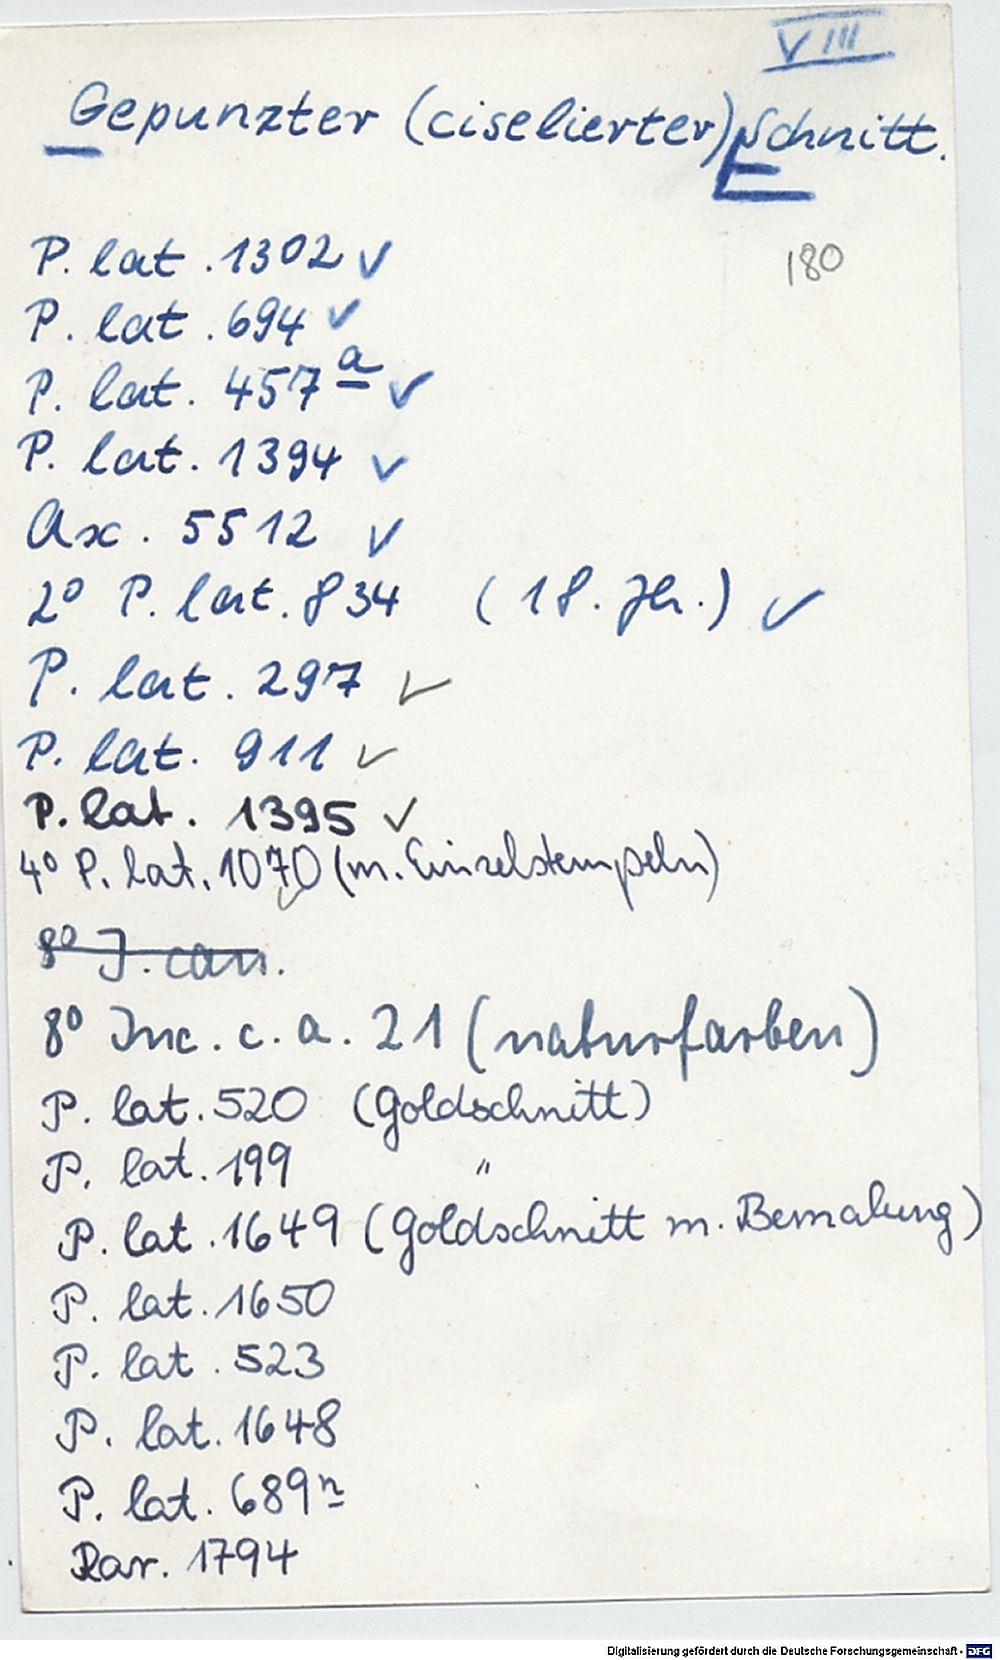 VIII
Gepunzter (ciselierter) Schnitt.
180
P. lat. 1302 ✓
P. lat. 694 ✓
P. lat. 457 a ✓
P. lat. 1394 ✓
Asc. 5512 ✓
2° P. lat. 834 (18. Jh.) ✓
P. lat. 297 ✓
P. lat. 911 ✓
P. lat. 1395 ✓
4° P. lat. 1070 (m. Einzelstempeln) ✓
8° J. can.
8° Inc. c. a. 21 (naturfarben)
P. lat. 520 (Goldschnitt)
P. lat. 199 "
P. lat. 1649 (Goldschnitt m. Bemalung)
P. lat. 1650
P. lat. 523
P. lat. 1648
P. lat. 689 n
Rar. 1794
Digitalisierung gefördert durch die Deutsche Forschungsgemeinschaft - DFG